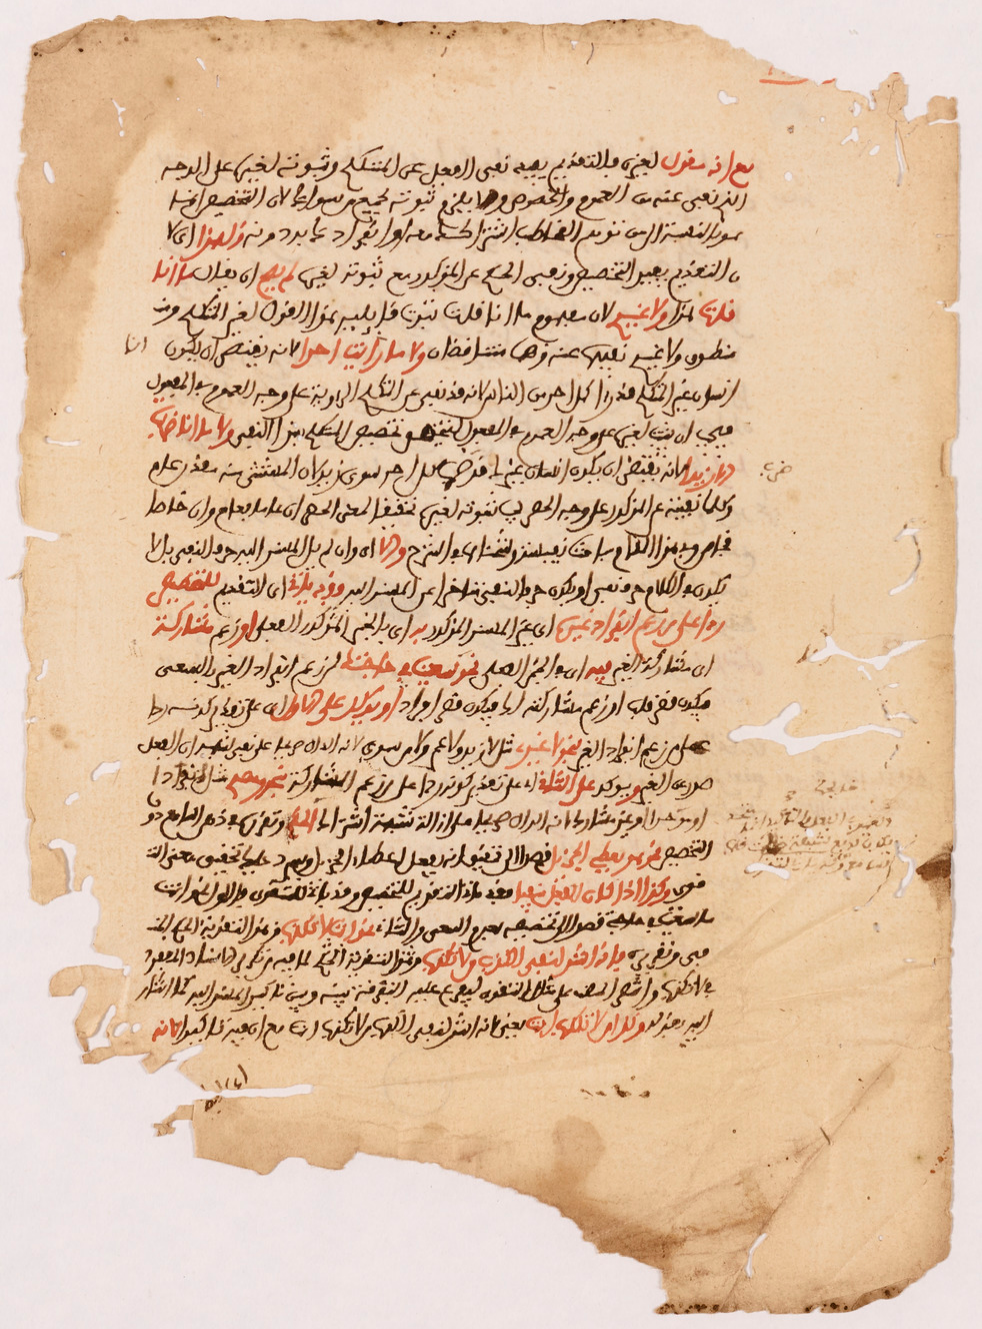 مع انه مقول لغيري فالتقديم يفيد نفي الفعل عن المتكلم وثبوته لغيره على الوجه
الذي نفي عنه من العموم والخصوص ولا يلزم ثبوته لجميع من سواك لان التخصيص انما
هو بالنسبة الى من توهم المخاطب اشتراكك معه او انفرادك به دونه ولهذا اي لا
ن التقديم يفيد التخصيص ونفي الحكم عن المذكور مع ثبوته لغيره لم يصح ان يقال ما انا
قلت هذا ولا غيري لان مفهوم ما انا قلت ثبوت قائلية هذا القول لغير المتكلم ومنـ
ـطوق ولا غيري نفيها عنه وهما متناقضان ولا ما رأيت احدا لانه يقتضي ان يكون
انا
انسان غير المتكلم قد رأى كل احد من الناس لانه قد نفي عن المتكلم الرؤية على وجه العموم في المفعول
فيجب ان يثبت لغيره على وجه العموم في المفعول ليتحقق تخصيص المتكلم بهذا النفي ولا ما انا ضربت
الا زيدا لانه يقتضي ان يكون انسان غيرك قد ضرب كل احد سوى زيد لان المستثنى منه مقدر عام
وكل ما نفيته عن المذكور على وجه الحصر يجب ثبوته لغيره تحقيقا لمعنى الحصر ان عاما فعام وان خاصا
فخاص وفي هذا المقام مباحث نفيسة وشحنا بها الشرح والا اي وان لم يل المسند اليه حرف النفي بان لا
يكون في الكلام حرف نفي او يكون حرف النفي متاخرا عن المسند اليه فقد يأتي اي التقديم للتخصيص
ردا على من زعم انفراد غيره اي غير المسند اليه المذكور به اي بالخبر المذكور الفعلي او زعم مشاركته
اي مشاركة الغير فيه اي في الخبر الفعلي نحو انا سعيت في حاجتك لمن زعم انفراد الغير بالسعي
فيكون قصر قلب او زعم مشاركته لك فيكون قصر افراد ويؤكد على الاول اي على تقدير كونه ردا
على من زعم انفراد الغير بنحو لا غيري مثل لا زيد ولا عمرو ولا من سوى لانه الدال صريحا على نفي شبهة ان الفعل
صدر عن الغير ويؤكد على الثاني اي على تقدير كونه ردا على من زعم المشاركة بنحو وحدي مثل منفردا
او متوحدا او غير مشارك لانه الدال صريحا على ازالة شبهة اشتراك وتقريره في ذهن السامع دو
التخصيص نحو هو يعطي الجزيل قصدا الى تحقيق انه يفعل اعطاء الجزيل وسيرد عليك تحقيق معنى التـ
ـقوي وكذا اذا كان الفعل منفيا فقد يأتي التقديم للتخصيص وقد يأتي للتقوي فالاول نحو انت
ما سعيت في حاجتي قصدا الى تخصيصه بعدم السعي والثاني نحو انت لا تكذب وهو لتقوية الحكم المنـ
ـفي وتقريره فانه اشد لنفي الكذب من لا تكذب لما فيه من تكرر الاسناد المفقود
في لا تكذب واقتصر المصنف على مثال التقوي ليفرع عليه التفرقة بينه وبين تاكيد المسند اليه كما اشار
اليه بقوله وكذا من لا تكذب انت يعني انه اشد لنفي الكذب من لا تكذب انت مع ان فيه تاكيدا لانه